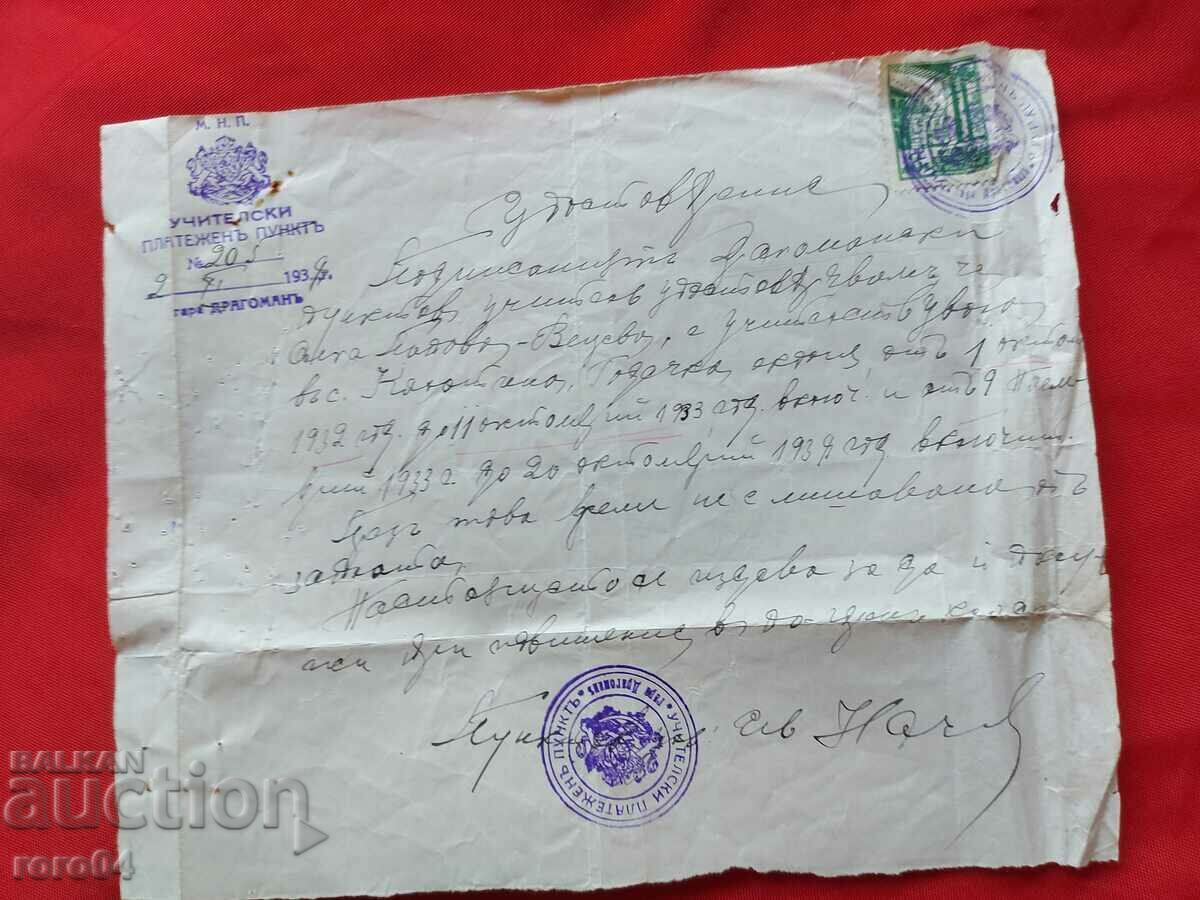 М. Н. П.
УЧИТЕЛСКИ
ПЛАТЕЖЕНЪ ПУНКТЪ
№ 205
9 193
гара ДРАГОМАНЪ
Удостоверение
Подписаниятъ Драгомански
учител удостоверявамъ че
Попова-Вецева, е учителствувала
въ с. околия отъ 1 октом
1932 год. до 11 октомврий 1933 год. включ. и отъ 9 ноем-
врий 1933 г. до 20 октомврий 1934 год. включит.
Презъ това време не е лишавана отъ
заплата.
Настоящето се издава за да й послу-
жи при повишение в по-горен клас
Ив Начев
УЧИТЕЛСКИ ПЛАТЕЖЕНЪ ПУНКТЪ * гара Драгоманъ *
BALKAN
auction
roro04